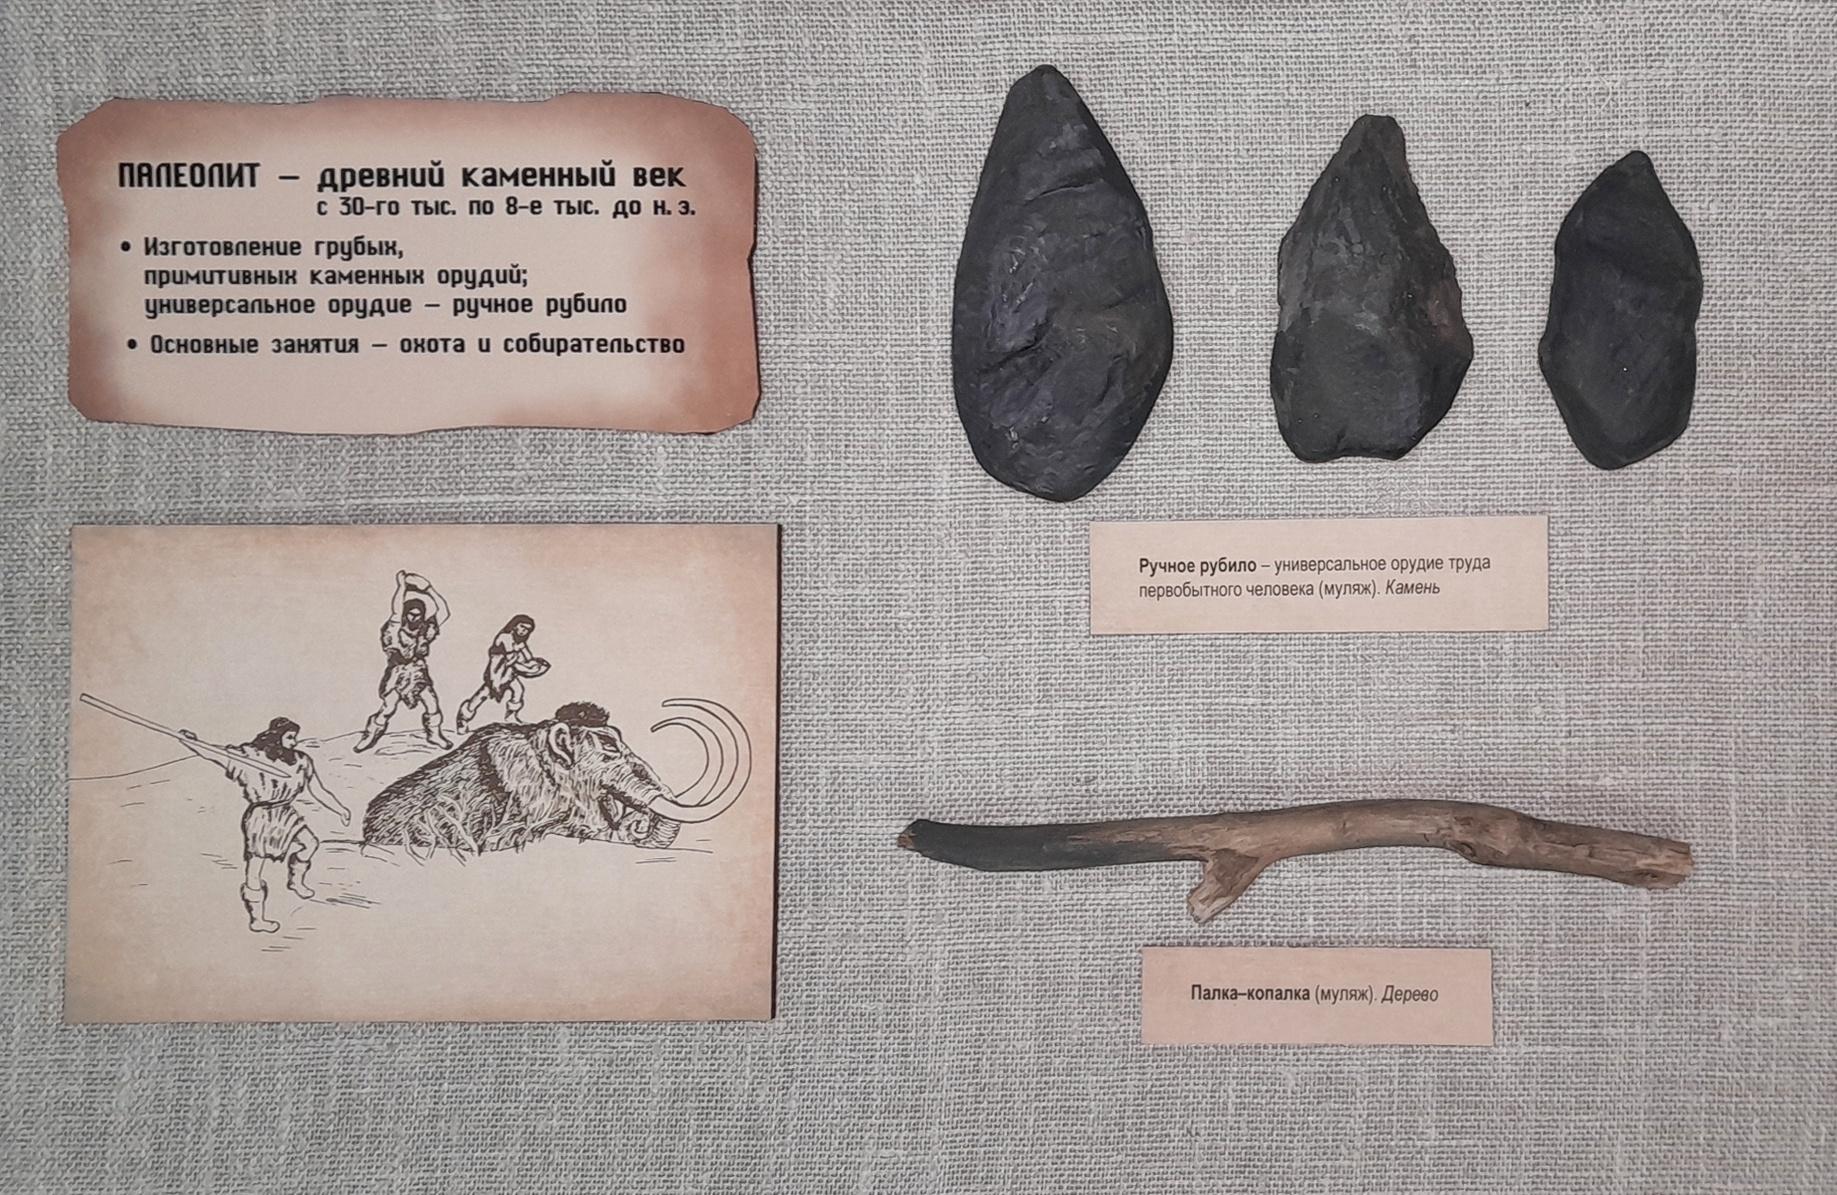 ПАЛЕОЛИТ – древний каменный век
с 30-го тыс. по 8-е тыс. до н. э.
• Изготовление грубых,
примитивных каменных орудий;
универсальное орудие – ручное рубило
• Основные занятия – охота и собирательство
Ручное рубило – универсальное орудие труда
первобытного человека (муляж). Камень
Палка–копалка (муляж). Дерево